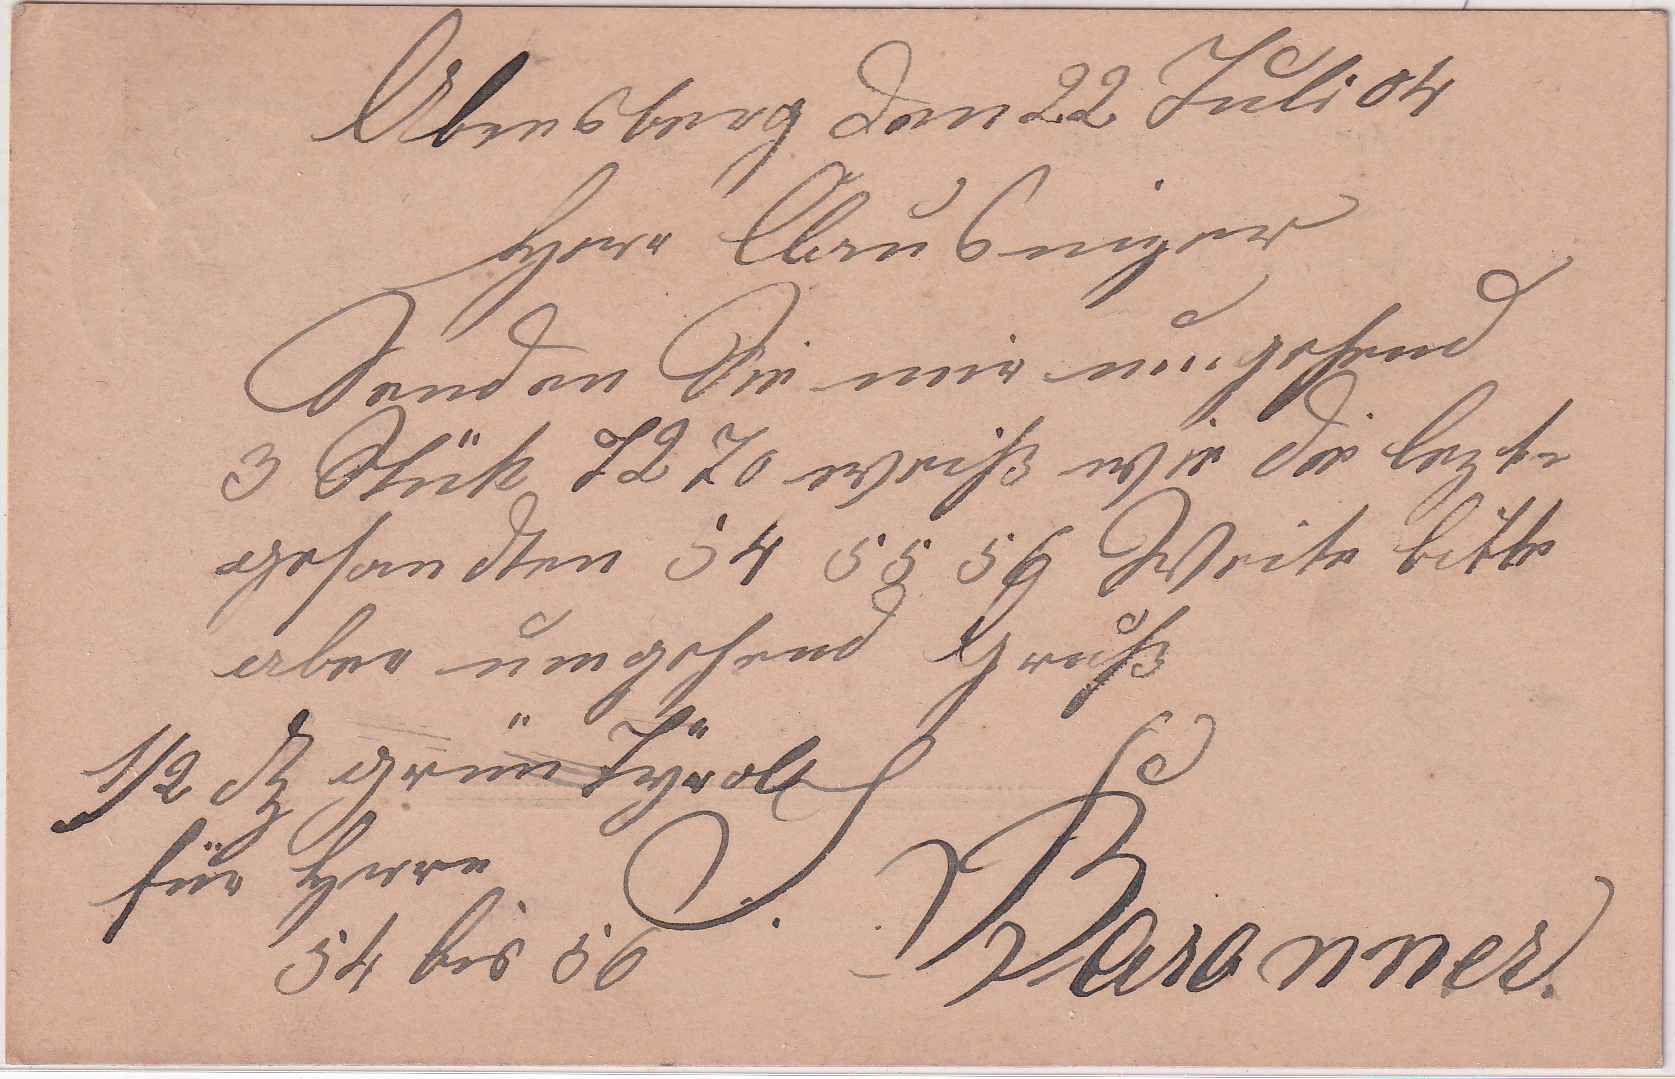 Abensberg den 22 Juli 04
Herr Clausnizer
Senden Sie mir umgehend
3 Stük 7270 weiß wie die lezt-
gesandten 54 55 56 Weite bitte
aber umgehend Gruß
1/2 dz grün Tyroler
für Herrn
54 bis 56
Baronner.